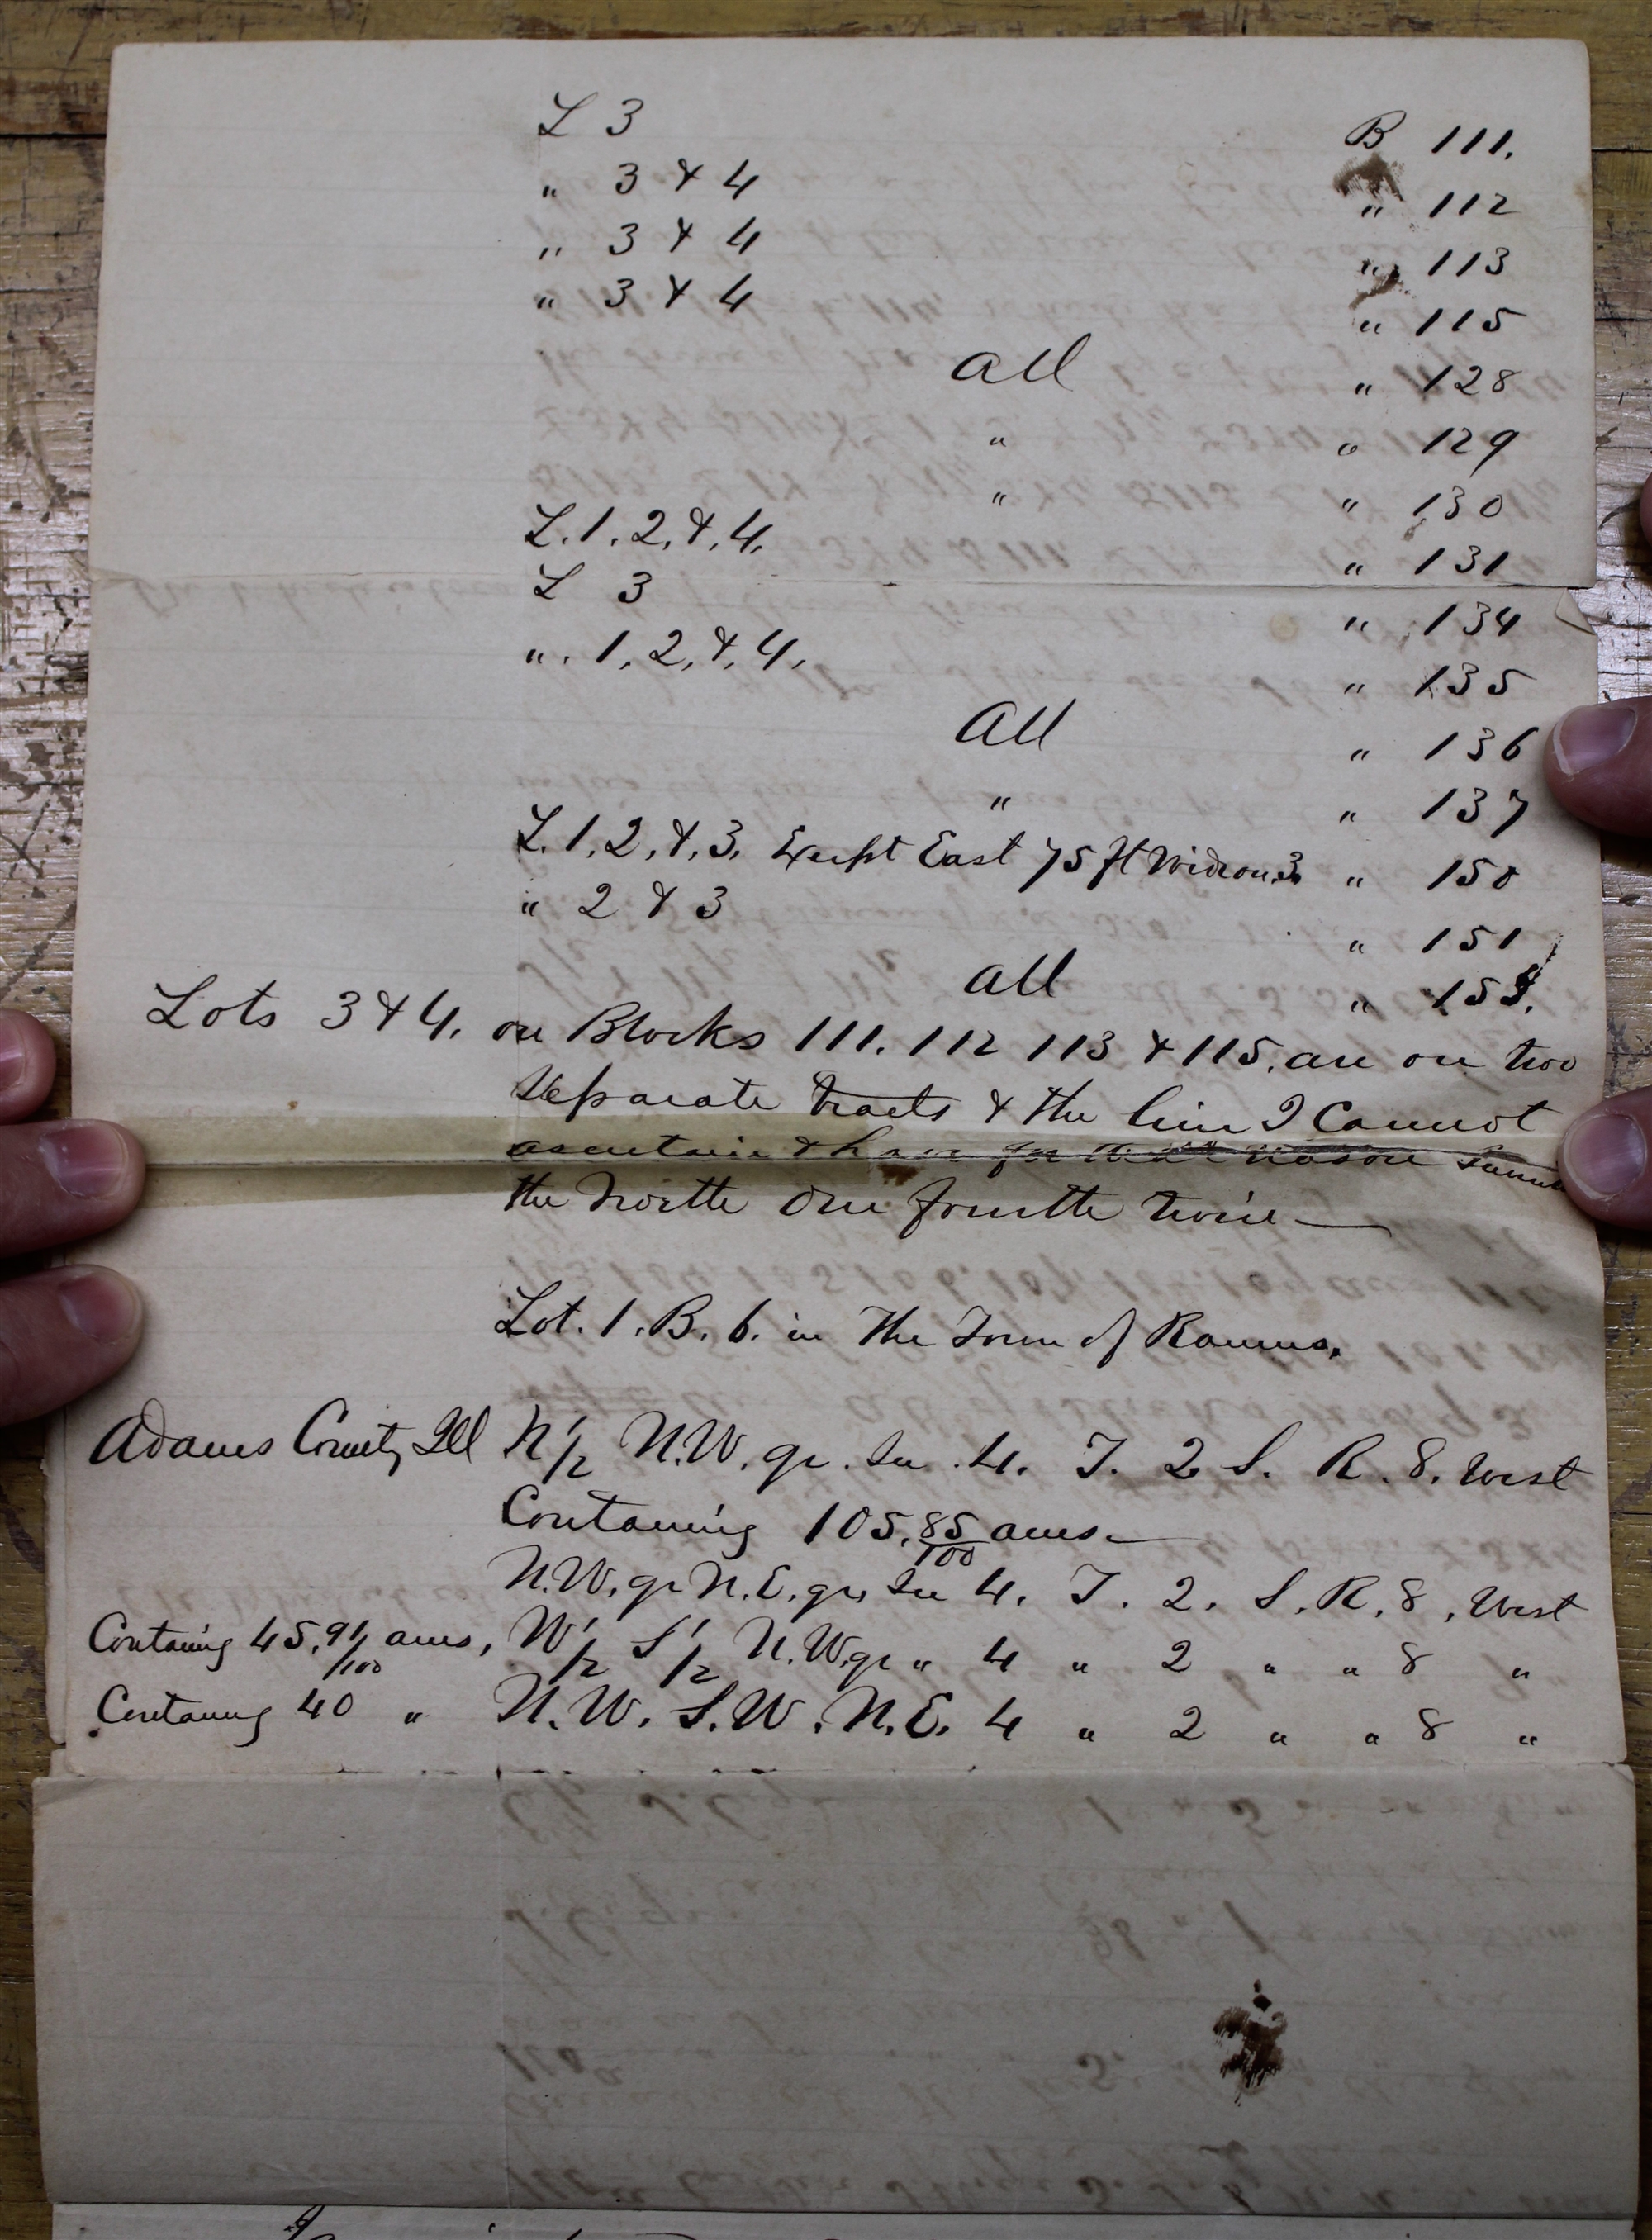 L 3 B 111.
" 3 & 4 " 112
" 3 & 4 " 113
" 3 & 4 " 115
all " 128
" " 129
" " 130
L. 1, 2, &, 4. " 131
L 3 " 134
". 1, 2, &, 4, " 135
All " 136
" " 137
L. 1, 2, &, 3, Except East 75 ft Wide on 3. " 150
" 2 & 3 " 151
all " 153.
Lots 3 & 4. on Blocks 111. 112 113 & 115. are on two
Separate tracts & the line I Cannot
ascertain & have for that reason
the North One fourth twice
Lot. 1. B. 6. in The Town of Ramus.
Adams County Ill N 1/2 N.W. qr. Sec. 4. T. 2 S. R. 8. West
Containing 105. 85/100 acres.
N.W. qr N.E. qr, Sec 4. T. 2. S. R. 8, West
Containing 45. 91/100 acres, W 1/2 S 1/2 N.W. qr " 4 " 2 " " 8 "
Containing 40 " N.W. S.W. N.E. 4 " 2 " " 8 "